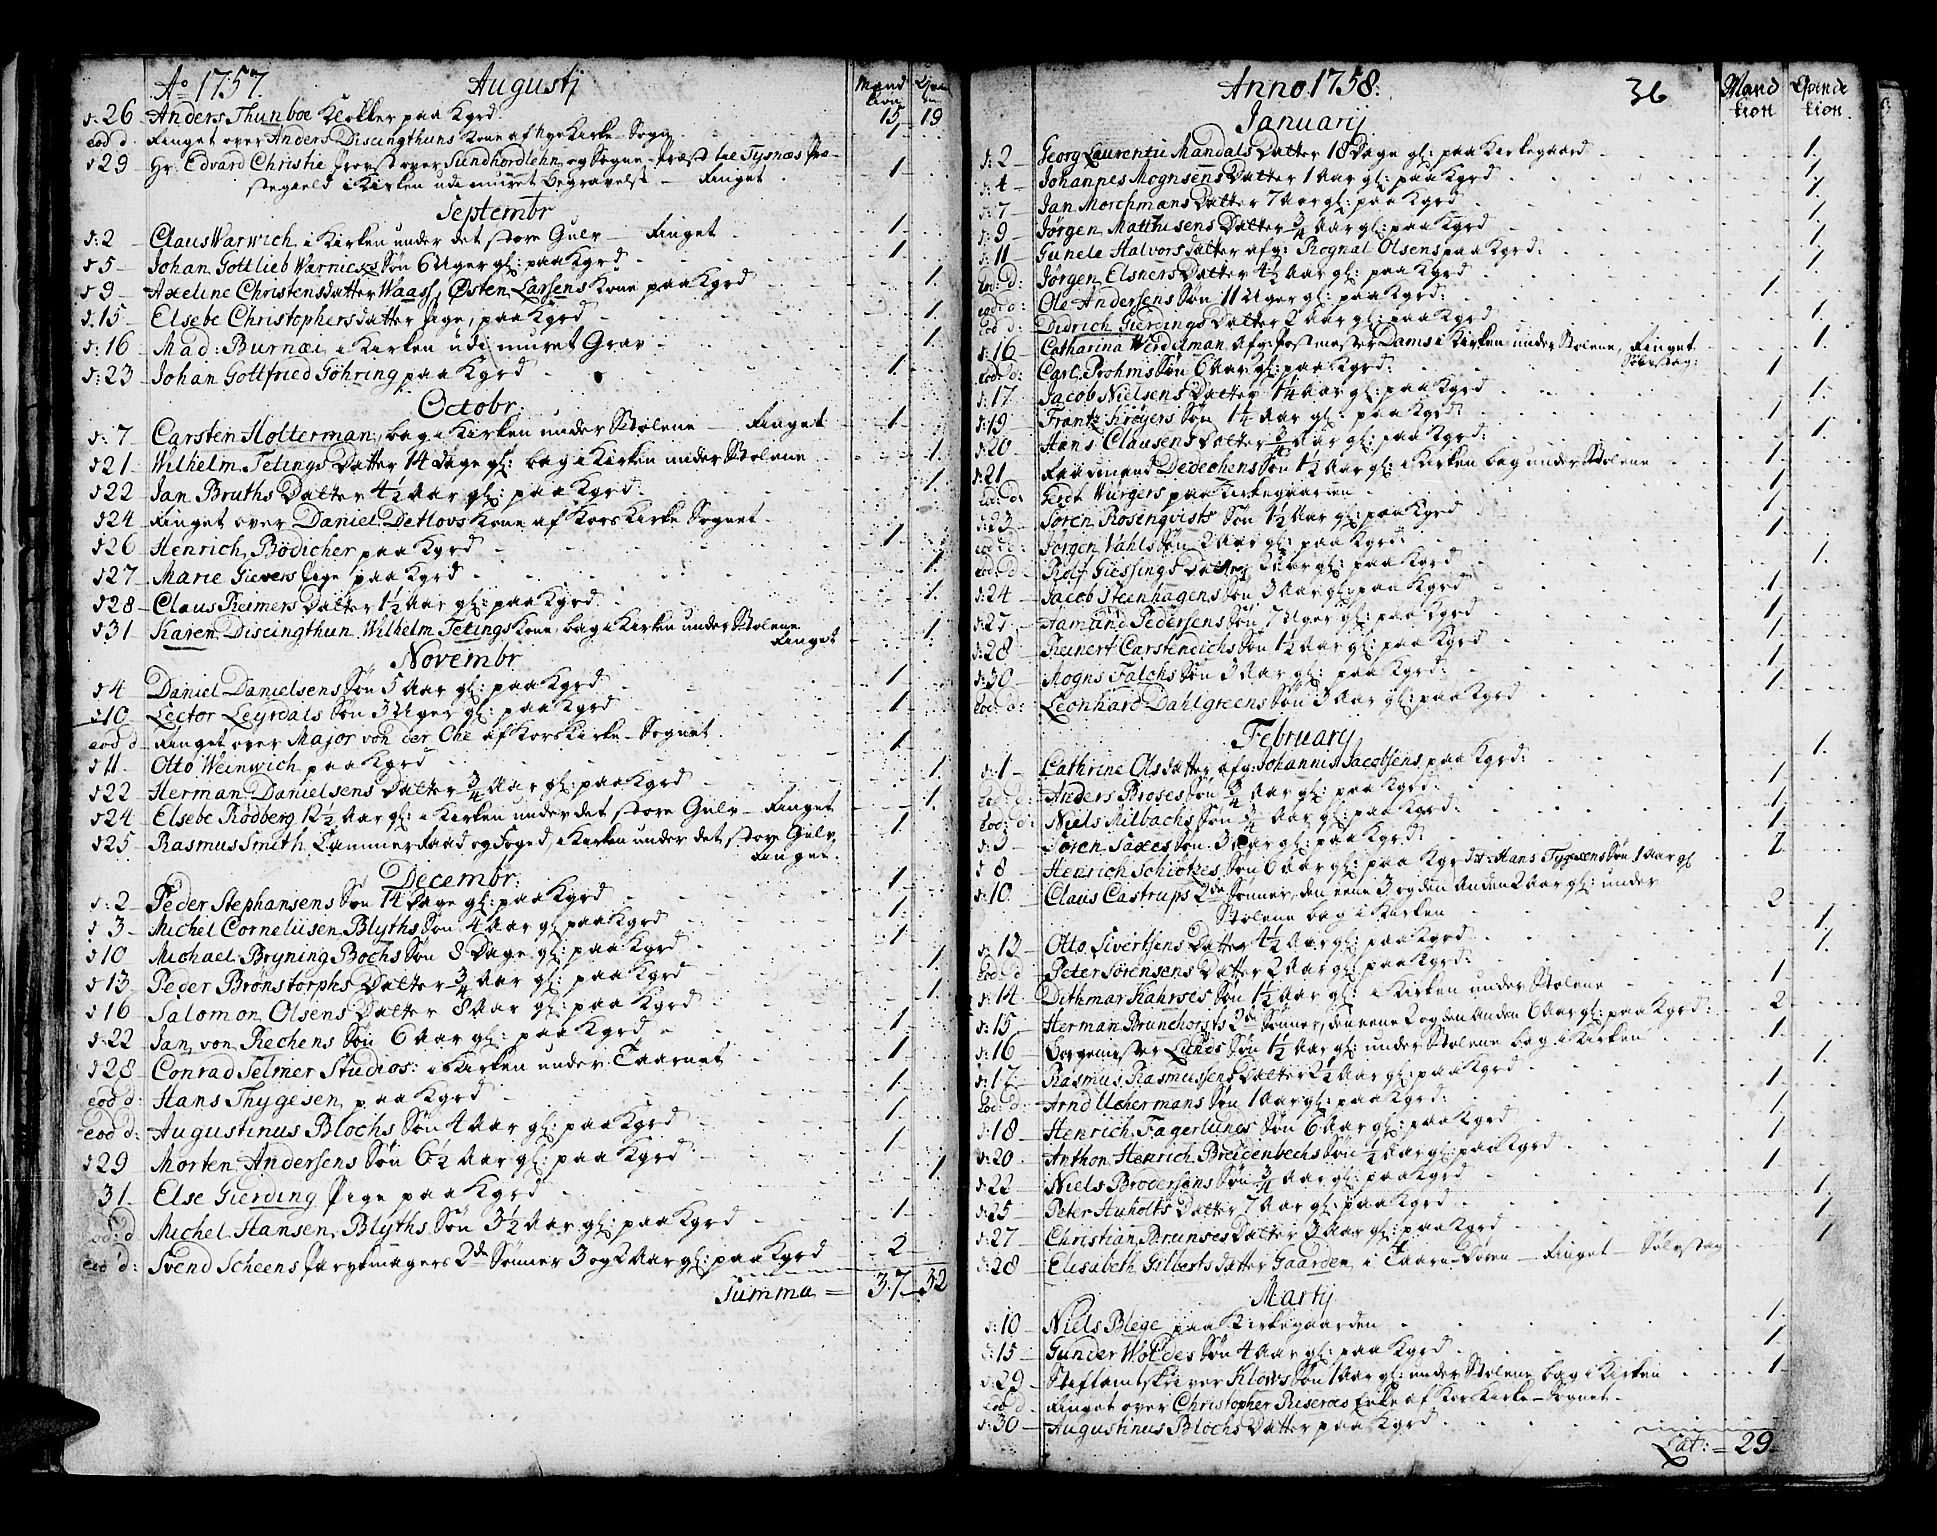 Ao 1757. Augustj Mand kion Qvin
d: 26 Anders Thunboe Klokker paa Kgrd. 15 - 19
eod d: Ringet over Anders Disingthuns Kone af Nye Kirke-Sogn
d 29 Hr. Edvard Christie Provst over Sundhordlehn og Sogne-Præst til Tysnæs Præ- 1
stegield i Kirken udi muret Begravelse — Ringet
Septembr
d: 2 Claus Warwich i Kirken under det store Gulv — Ringet 1
d 5 Johan Gottlieb Warnicks Søn 6 Uger gl: paa Kgrd 1
d 9 Axeline Christensdatter Waass, Østen Larsens Kone paa Kgrd 1
d. 15 Elsebe Christophersdatter Pige, paa Kgrd 1
d: 16 Mad: Burnæi i Kirken udi muret Grav 1
d: 23 Johan Gottfried Göhring paa Kgrd 1
Octobr
d: 7 Carsten Holterman, bag i Kirken under Stolene — Ringet 1
d 21 Wilhelm Tetings Datter 14 dage gl: bag i Kirken under Stolene 1
d 22 Jan Bruths Datter 4½ Aar gl: paa Kgrd: 1
d 24 Ringet over Daniel Detlovs Kone af Kors Kirke Sognet
d 26 Henrich Bödicher paa Kgrd 1
d 27 Marie Gievers Pige paa Kgrd 1
d 28 Claus Reimers Datter 1½ Aar gl: paa Kgrd 1
d 31 Karen Discingthun Wilhelm Tetings Kone bag i Kirken under Stolene 1
Ringet
Novembr
d 4 Daniel Danielsens Søn 5 Aar gl: paa Kgrd 1
d 10 Lector Leyrdals Søn 3 Uger gl: paa Kgrd 1
eod d Ringet over Major von der Ohe af Kors Kirke-Sognet
d 11 Otto Weinwich paa Kgrd 1
d 22 Herman Danielsens Datter ¾ Aar gl: paa Kgrd 1
d 24 Elsebe Rödberg 12½ Aar gl: i Kirken under det store Gulv — Ringet 1
d 25 Rasmus Smith Cammerraad og Foged, i Kirken under det store Gulv 1
Ringet.
Decembr:
d: 2 Peder Stephansens Søn 14 Dage gl: paa Kgrd 1
d 3 Michel Corneliisen Blyths Søn 4 Aar gl paa Kgrd 1
d 10 Michael Bryning Bochs Søn 8 Dage gl: paa Kgrd 1
d 13 Peder Brönstorphs Datter ¾ Aar gl: paa Kgrd 1
d 16 Salomon Olsens Datter 8 Aar gl: paa Kgrd 1
d: 22 Jan von Rechens Søn 6 Aar gl: paa Kgrd 1
d 28 Conrad Telmer Studios: i Kirken under Taarnet 1
eod d: Hans Thygesen paa Kgrd 1
eod d: Augustinus Blochs Søn 4 Aar gl: paa Kgrd 1
d 29 Morten Andersens Søn 6½ Aar gl: paa Kgrd 1
31 Else Gierding Pige paa Kgrd 1
eod: d Michel Hansen Blyths Søn 3½ Aar gl: paa Kgrd 1
eod d: Svend Scheens Parykmagers 2de Sønner 3 og 2 Aar gl: paa Kgrd 2
Summa = 37 - 32
Anno 1758: 36 Mand kion Qvinde kion.
Januarij
d: 2 Georg Laurentii Mandals Datter 18 Dage gl: paa Kirkegaard 1.
d: 4 Johannes Mognsens Datter 1 Aar gl: paa Kgrd 1.
d: 7 Jan Morchmans Datter 7 Aar gl: paa Kgrd 1.
d: 9 Jørgen Matthisens Datter ¾ Aar gl: paa Kgrd 1.
d: 11 Gunele Halvorsdatter afg: Rognal Olsens paa Kgrd: 1.
eod: d: Jørgen Elsners Datter 4½ Aar gl: paa Kgrd 1.
eod d: Ole Andersens Søn 11 Uger gl: paa Kgrd: 1
eod d: Didrich Gierdings Datter 2 Aar gl: paa Kgrd 1.
d: 16 Catharina Werdelman Afg: Postmester Dams i Kirken under Stolene, Ringet 1.
Sølvstag:
eod: d: Carl Prohms Søn 6 Aar gl: paa Kgrd: 1
d: 17 Jacob Nielsens Datter 1¼ Aar gl: paa Kgrd 1.
d: 19 Frantz Krøyers Søn 1¼ Aar gl: paa Kgrd 1
d: 20 Hans Clausens Datter ¾ Aar gl: paa Kgrd: 1.
d: 21 Raadmand Dedechens Søn 1½ Aar gl: i Kirken bag under Stolene 1.
eod: d: Gerdt Würgers paa Kirkegaarden 1
d: 23 Søren Rosenqvists Søn 1½ Aar gl: paa Kgrd 1
eod d: Jørgen Vahls Søn 2 Aar gl: paa Kgrd: 1
eod: d Rolf Giessings Datter 2 Aar gl: paa Kgrd 1.
d: 24 Jacob Steenhagens Søn 3 Aar gl: paa Kgrd 1
d: 27 Aamund Pedersens Søn 7 Uger gl: paa Kgrd 1
d: 28 Reinert Carstendichs Søn 1½ Aar gl: paa Kgrd 1
d: 30 Mogns Falchs Søn 3 Aar gl: paa Kgrd: 1
eod: d: Leonhard Dahlgreens Søn 3 Aar gl: paa Kgrd 1
February
d: 1 Cathrine Olsdatter afg: Johannis Jacobsens paa Kgrd: 1.
eod: d: Anders Broses Søn ¾ Aar gl: paa Kgrd: 1
eod: d: Niels Milbachs Søn ¾ Aar gl: paa Kgrd: 1
d: 3 Søren Saxes Søn 3 Aar gl: paa Kgrd: 1
d 8 Henrich Schiötzes Søn 6 Aar gl: paa Kgrd It: Hans Tygesens Søn 1 Aar gl 2
d: 10 Claus Castrups 2de Sønner, den eene 3 og den Anden 2 Aar gl: under
Stolene bag i Kirken 2
d: 13 Otto Sivertsens Datter 4½ Aar gl: paa Kgrd 1.
eod: d Peter Sörensens Datter 2 Aar gl: paa Kgrd: 1.
d: 14 Dithmar Kahrses Søn 1½ Aar gl: i Kirken under Stolene 1
d: 15 Herman Brunchorsts 2de Sønner, den eene 2 og den Anden 6 Aar gl: paa Kgrd: 2
d: 16 Borgemester Lunds Søn 1½ Aar gl: under Stolene bag i Kirken 1
d: 17 Rasmus Rasmussens Datter 2½ Aar gl: paa Kgrd 1.
eod: d: Arnd Uchermans Søn 1 Aar gl: paa Kgrd: 1
d: 18 Henrich Fagerlunds Søn 6 Aar gl: paa Kgrd 1
d: 20 Anthon Henrich Breidenbechs Søn ½ Aar gl: paa Kgrd 1
d: 22 Niels Brodersøns Søn ¾ Aar gl: paa Kgrd 1
d: 25 Peter Huholts Datter 7 Aar gl: paa Kgrd 1
d: 27 Christian Brunses Datter 3 Aar gl: paa Kgrd 1
d: 28 Elisabeth Gilbertsdatter Gaarden i Taarn-Dören — Ringet — Sølvstag 1
Martij
d: 10 Niels Blege paa Kirkegaarden 1.
d: 15 Gunder Woldes Søn 4 Aar gl: paa Kgrd 1
d: 29 Stiftamtskriver Klows Søn 1 Aar gl: under Stolene bag i Kirken 1
eod d Ringet over Christopher Riseroes Enke af Kors Kirke-Sognet
d: 30 Augustinus Blochs Datter paa Kgrd
Lat: = 29